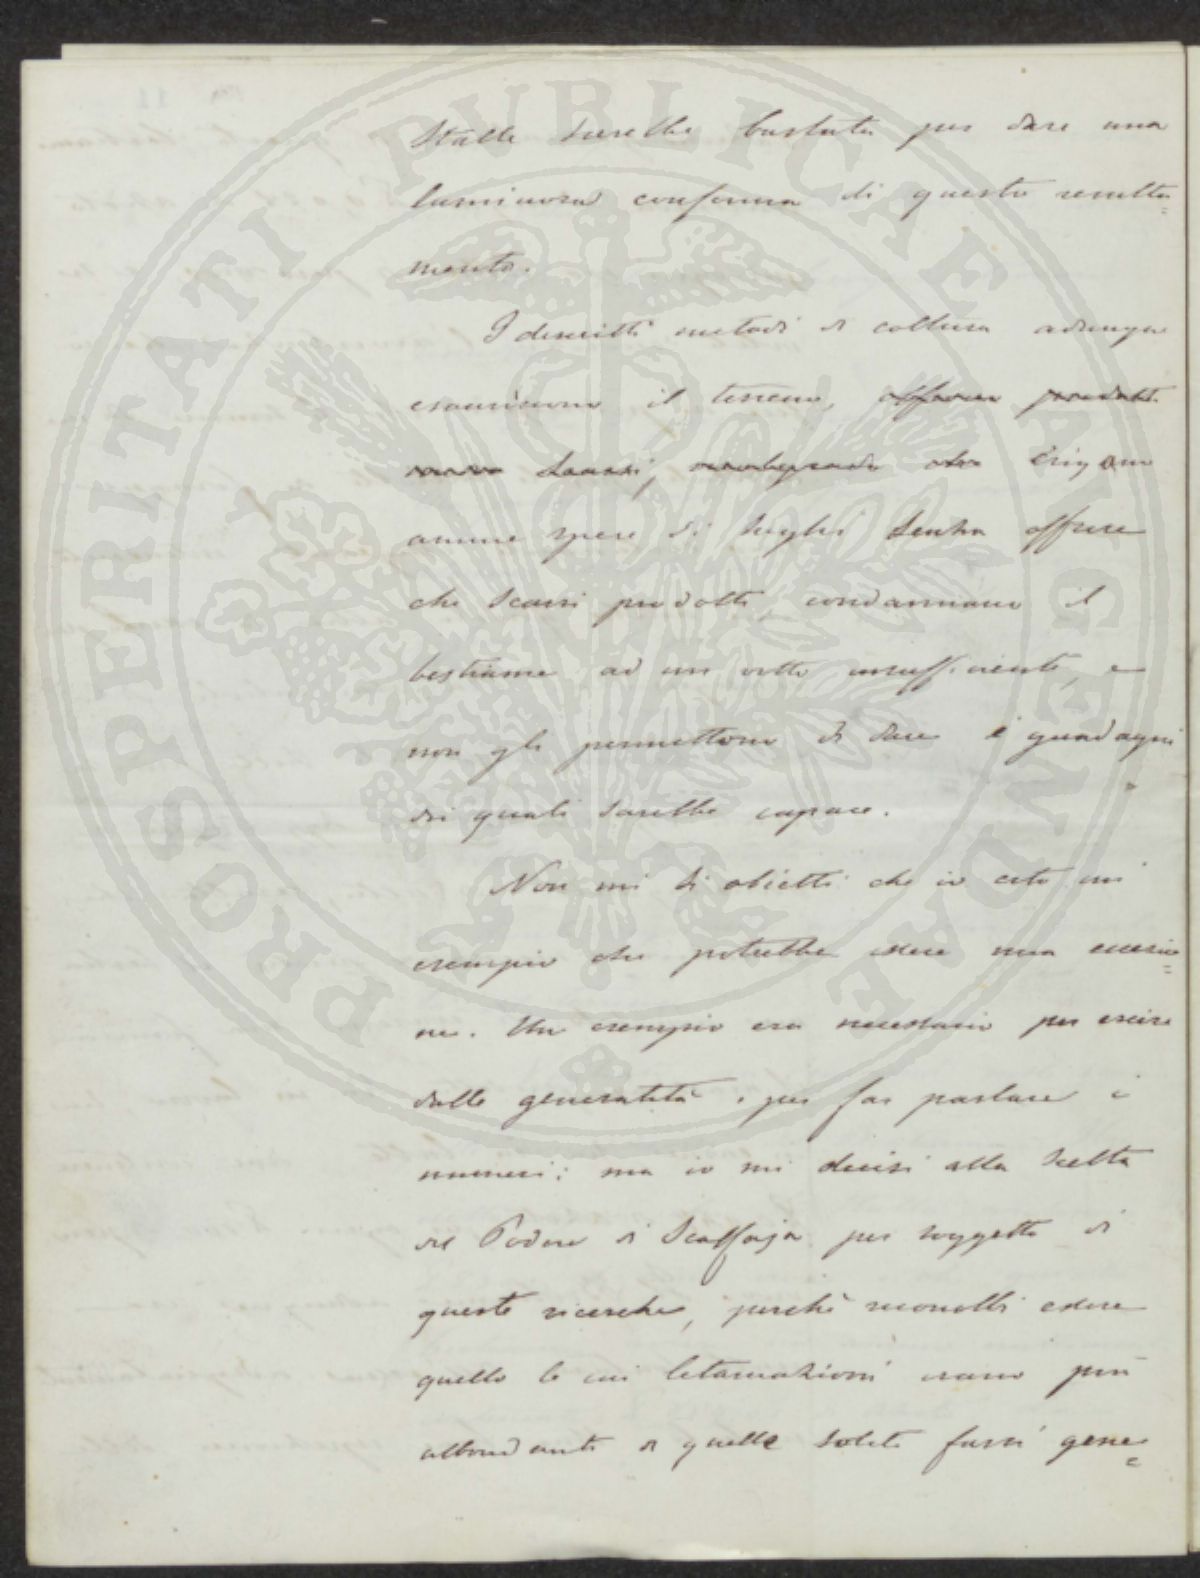 Stalle sarebbe bastata per dare una
luminosa conferma di questo resulta=
mento.
I descritti metodi di coltura adunque
esauriscono il terreno, offrono prodotti
scarsi, esigono
spese di senza offrire
che scarsi prodotti, condannano il
bestiame ad un vitto insufficiente, e
non gli permettono di dare i guadagni
dei quali sarebbe capace.
Non mi si obietti che io cito un
esempio che potrebbe essere una eccezio=
ne. Un esempio era necessario per escire
dalle generalità, per far parlare i
numeri: ma io mi decisi alla scelta
del Podere di Scaffaja per soggetto di
queste ricerche, perché essere
quello le cui letamazioni erano più
abbondanti di quelle solite farsi gene=
PROSPERITATI PUBLICAE AUGENDAE